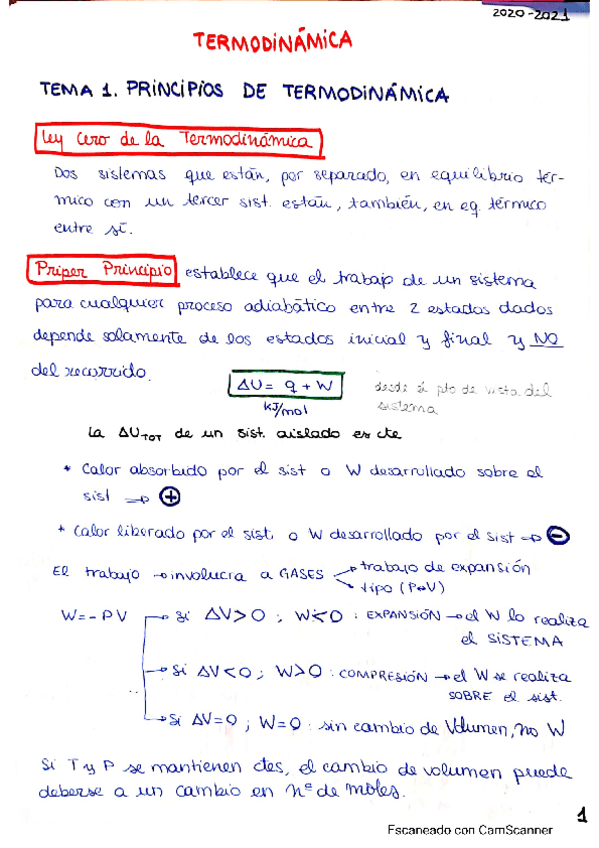 2020-2021
TERMODINÁMICA
TEMA 1. PRINCIPIOS DE TERMODINÁMICA
Ley Cero de la Termodinámica
Dos sistemas que están, por separado, en equilibrio tér-
mico con un tercer sist. están, también, en eq. térmico
entre sí.
Priper Principio establece que el trabajo de un sistema
para cualquier proceso adiabático entre 2 estados dados
depende solamente de los estados inicial y final y NO
del recorrido.
ΔU = q + W desde el pto de vista del
kJ/mol sistema
La ΔU_TOT de un sist. aislado es cte
* Calor absorbido por el sist o W desarrollado sobre el
sist → ⊕
* Calor liberado por el sist o W desarrollado por el sist → ⊖
El trabajo → involucra a GASES → trabajo de expansión
→ tipo (P·V)
W = - PV → Si ΔV>0 ; W<0 : EXPANSIÓN → el W lo realiza
el SISTEMA
→ Si ΔV<0 ; W>0 : COMPRESIÓN → el W se realiza
SOBRE el sist.
→ Si ΔV=0 ; W=0 : sin cambio de Volumen, no W
Si T y P se mantienen ctes, el cambio de volumen puede
deberse a un cambio en nº de moles.
1
Escaneado con CamScanner